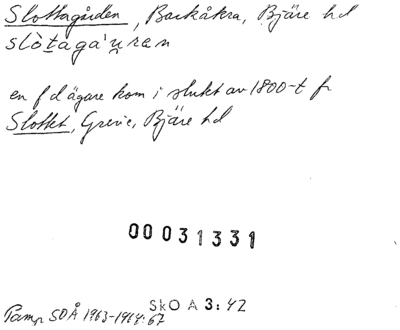 Slottagården, Barkåkra, Bjäre hd
slòtaga'u̯ran
en f d ägare kom i slutet av 1800-t fr
Slottet, Grevie, Bjäre hd
00031331
SkO A 3:42
Pamp SOÅ 1963-1964:67